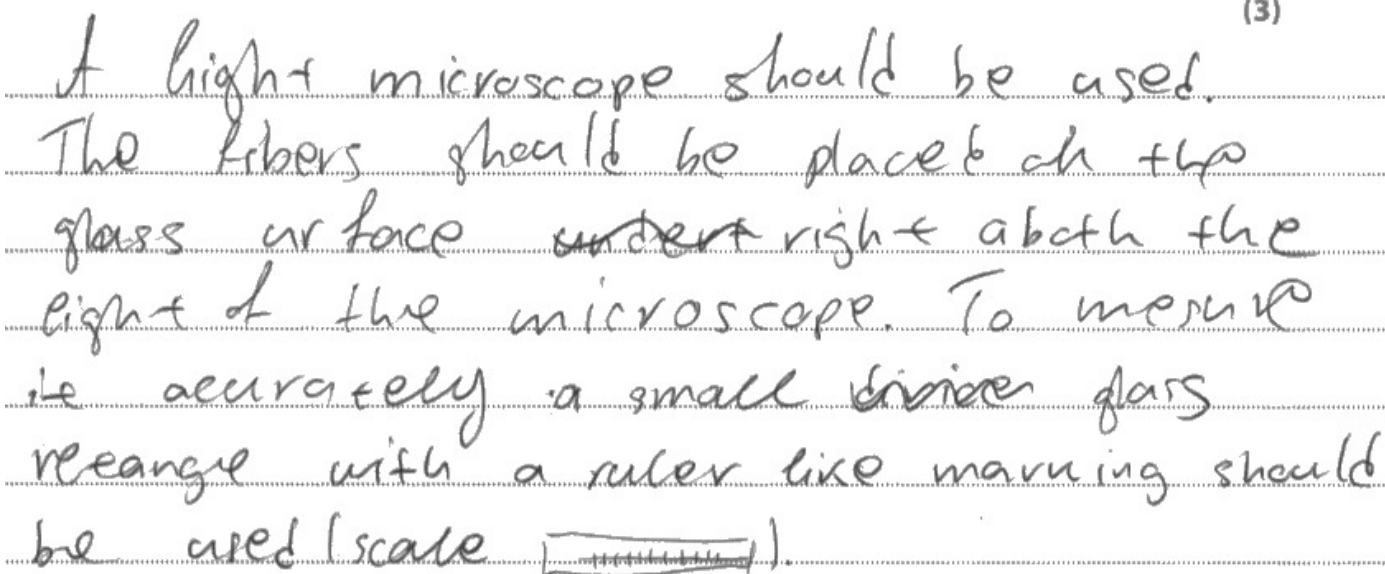 (3)
A light microscope should be used.
The fibers should be placed on the
glass urface right aboth the
light of the microscope. To mesure
it acurately a small glass
reeangle with a ruler like marking should
be used (scale ).